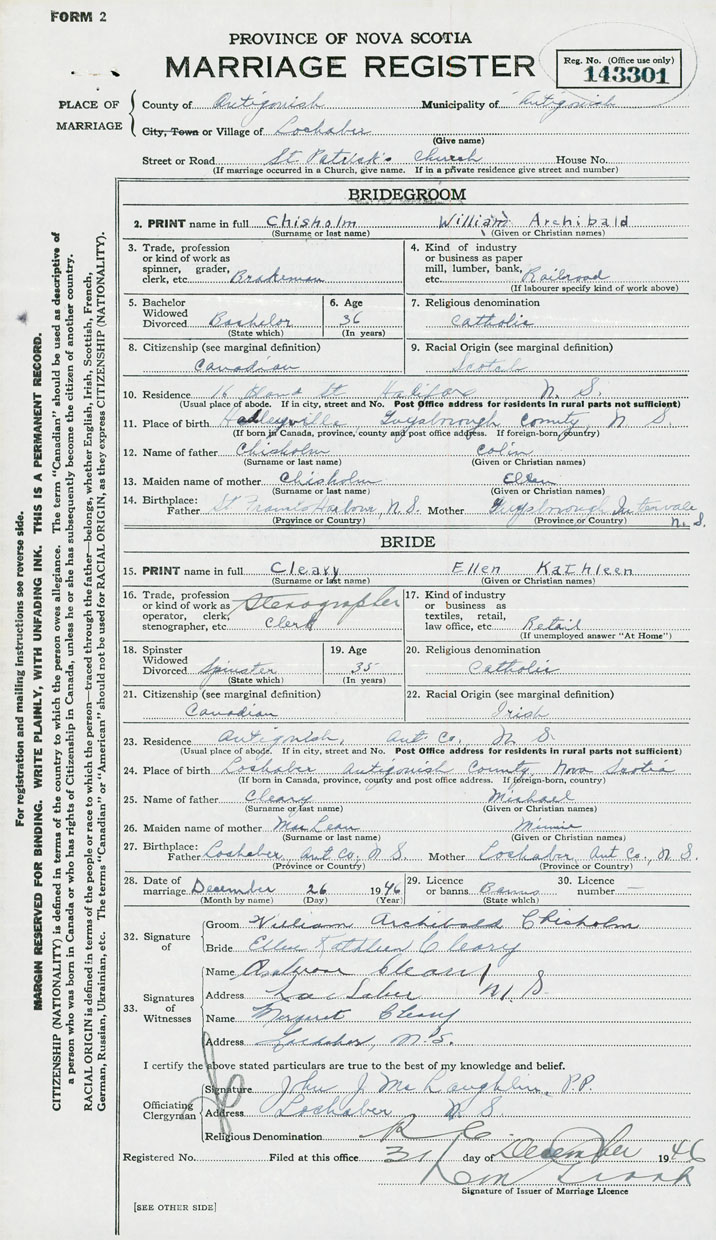 FORM 2
PROVINCE OF NOVA SCOTIA
MARRIAGE REGISTER
Reg. No. (Office use only)
143301
PLACE OF MARRIAGE
County of Antigonish Municipality of Antigonish
City, Town or Village of Lochaber
(Give name)
Street or Road St Patrick's Church House No.
(If marriage occurred in a Church, give name. If in a private residence give street and number)
BRIDEGROOM
2. PRINT name in full Chisholm William Archibald
(Surname or last name) (Given or Christian names)
3. Trade, profession or kind of work as spinner, grader, clerk, etc. Brakeman
4. Kind of industry or business as paper mill, lumber, bank, etc. Railroad
(If labourer specify kind of work above)
5. Bachelor Widowed Divorced Bachelor
(State which)
6. Age 36
(In years)
7. Religious denomination
Catholic
8. Citizenship (see marginal definition)
Canadian
9. Racial Origin (see marginal definition)
Scotch
10. Residence 16 St Halifax N. S.
(Usual place of abode. If in city, street and No. Post Office address for residents in rural parts not sufficient)
11. Place of birth Hadleyville Guysborough County N S.
(If born in Canada, province, county and post office address. If foreign-born, country)
12. Name of father Chisholm Colin
(Surname or last name) (Given or Christian names)
13. Maiden name of mother Chisholm Ellen
(Surname or last name) (Given or Christian names)
14. Birthplace: Father St Francis Harbour, N.S. Mother Guysborough Intervale N. S.
(Province or Country) (Province or Country)
BRIDE
15. PRINT name in full Cleary Ellen Kathleen
(Surname or last name) (Given or Christian names)
16. Trade, profession or kind of work as operator, clerk, stenographer, etc. Stenographer Clerk
17. Kind of industry or business as textiles, retail, law office, etc. Retail
(If unemployed answer "At Home")
18. Spinster Widowed Divorced Spinster
(State which)
19. Age 35
(In years)
20. Religious denomination
Catholic
21. Citizenship (see marginal definition)
Canadian
22. Racial Origin (see marginal definition)
Irish
23. Residence Antigonish, Ant Co, N S
(Usual place of abode. If in city, street and No. Post Office address for residents in rural parts not sufficient)
24. Place of birth Lochaber Antigonish County Nova Scotia
(If born in Canada, province, county and post office address. If foreign-born, country)
25. Name of father Cleary Michael
(Surname or last name) (Given or Christian names)
26. Maiden name of mother MacLean Minnie
(Surname or last name) (Given or Christian names)
27. Birthplace: Father Lochaber, Ant Co, N S. Mother Lochaber, Ant Co, N. S.
(Province or Country) (Province or Country)
28. Date of marriage December 26 1946
(Month by name) (Day) (Year)
29. Licence or banns Banns
(State which)
30. Licence number
32. Signature of
Groom William Archibald Chisholm
Bride Ellen Kathleen Cleary
33. Signatures of Witnesses
Name Cleary
Address Loc Haber N. S
Name Margaret Cleary
Address Lochaber, N.S.
I certify the above stated particulars are true to the best of my knowledge and belief.
Officiating Clergyman
Signature John J McLaughlin, P.P.
Address Lochaber N S
Religious Denomination R C
Registered No. Filed at this office 31 day of December 1946
Signature of Issuer of Marriage Licence
[SEE OTHER SIDE]
For registration and mailing instructions see reverse side.
MARGIN RESERVED FOR BINDING. WRITE PLAINLY, WITH UNFADING INK. THIS IS A PERMANENT RECORD.
CITIZENSHIP (NATIONALITY) is defined in terms of the country to which the person owes allegiance. The term "Canadian" should be used as descriptive of
a person who was born in Canada or who has rights of Citizenship in Canada, unless he or she has subsequently become the citizen of another country.
RACIAL ORIGIN is defined in terms of the people or race to which the person—traced through the father—belongs, whether English, Irish, Scottish, French,
German, Russian, Ukrainian, etc. The terms "Canadian" or "American" should not be used for RACIAL ORIGIN, as they express CITIZENSHIP (NATIONALITY).